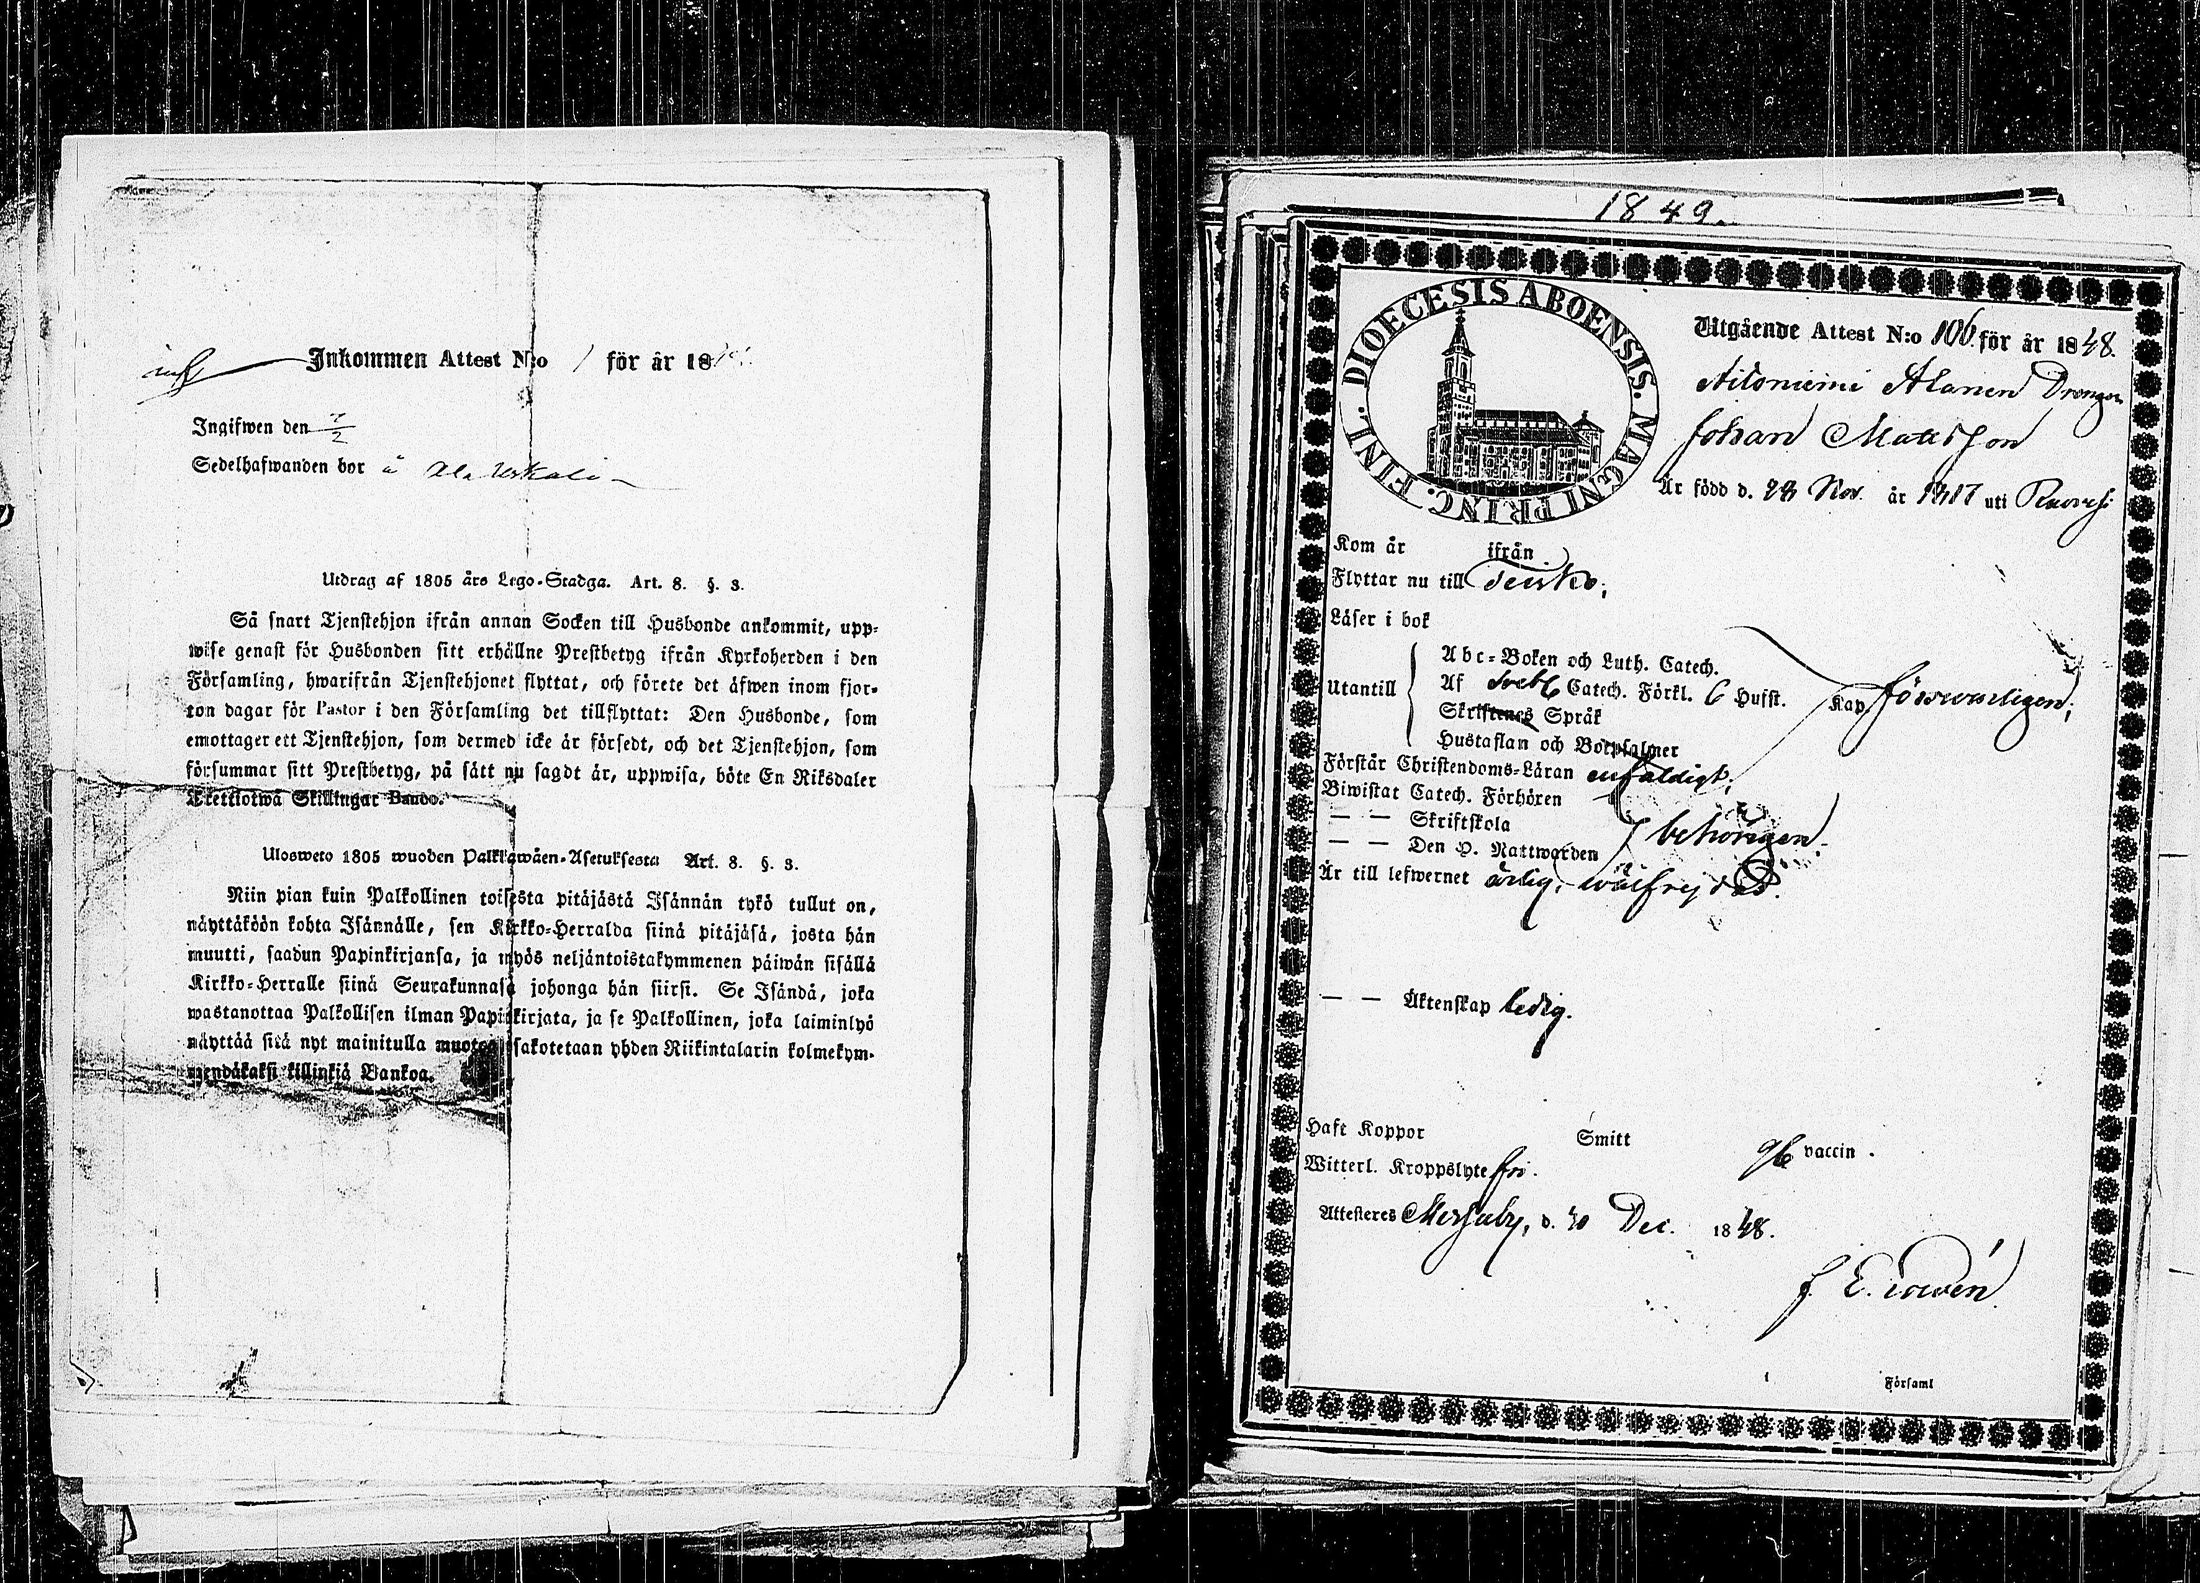 Inkommen Attest N:o 1 för år 18
Ingifwen den 7/2
Sedelhafwanden bor å Ala Uskali
Utdrag af 1805 års Lego-Stadga. Art. 8. §. 3.
Så snart Tjenstehjon ifrån annan Socken till Husbonde ankommit, upp-
wise genast för Husbonden sitt erhållne Prestbetyg ifrån Kyrkoherden i den
Församling, hwarifrån Tjenstehjonet flyttat, och förete det äfwen inom fjor-
ton dagar för Pastor i den Församling det tillflyttat: Den Husbonde, som
emottager ett Tjenstehjon, som dermed icke är försedt, och det Tjenstehjon, som
försummar sitt Prestbetyg, på sätt nu sagdt är, uppwisa, böte En Riksdaler
Trettiotwå Skillingar Banco.
Ulosweto 1805 wuoden Palkkawäen-Asetuksesta Art. 8. §. 3.
Niin pian kuin Palkollinen toisesta pitäjästä Isännän tykö tullut on,
näyttäköön kohta Isännälle, sen Kirkko-Herralda siinä pitäjäsä, josta hän
muutti, saadun Papinkirjansa, ja myös neljäntoistakymmenen päiwän sisällä
Kirkko-Herralle siinä Seurakunnasa johonga hän siirsi. Se Isändä, joka
wastanottaa Palkollisen ilman Papinkirjata, ja se Palkollinen, joka laiminlyö
näyttää sitä nyt mainitulla muotoa, sakotetaan yhden Riikintalarin kolmekym-
mendäkaksi killinkiä Bankoa.
1849.
DIOECESIS ABOENSIS. MAGNI PRINC. FINL.
Utgående Attest N:o 106. för år 1848.
Alanen Drengen
Johan Mattsson
Är född d. 28 Nov. år 1817 uti Ruovesi
Kom år ifrån
Flyttar nu till Teisko;
Läser i bok
Utantill
Abc-Boken och Luth. Catech.
Af Catech. Förkl. 6 Hufst. Kap försvarligen;
Skriftenes Språk
Hustaflan och Botpsalmer
Förstår Christendoms-Läran enfaldigt;
Biwistat Catech. Förhören
— — Skriftskola
— — Den H. Nattwarden behörigen.
Är till lefwernet ärlig, wälfrejdad.
— — Äktenskap ledig.
Haft Koppor Smitt vaccin.
Witterl. Kroppslyte fri.
Attesteres Messuby, d. 30 Dec. 1848.
Församl